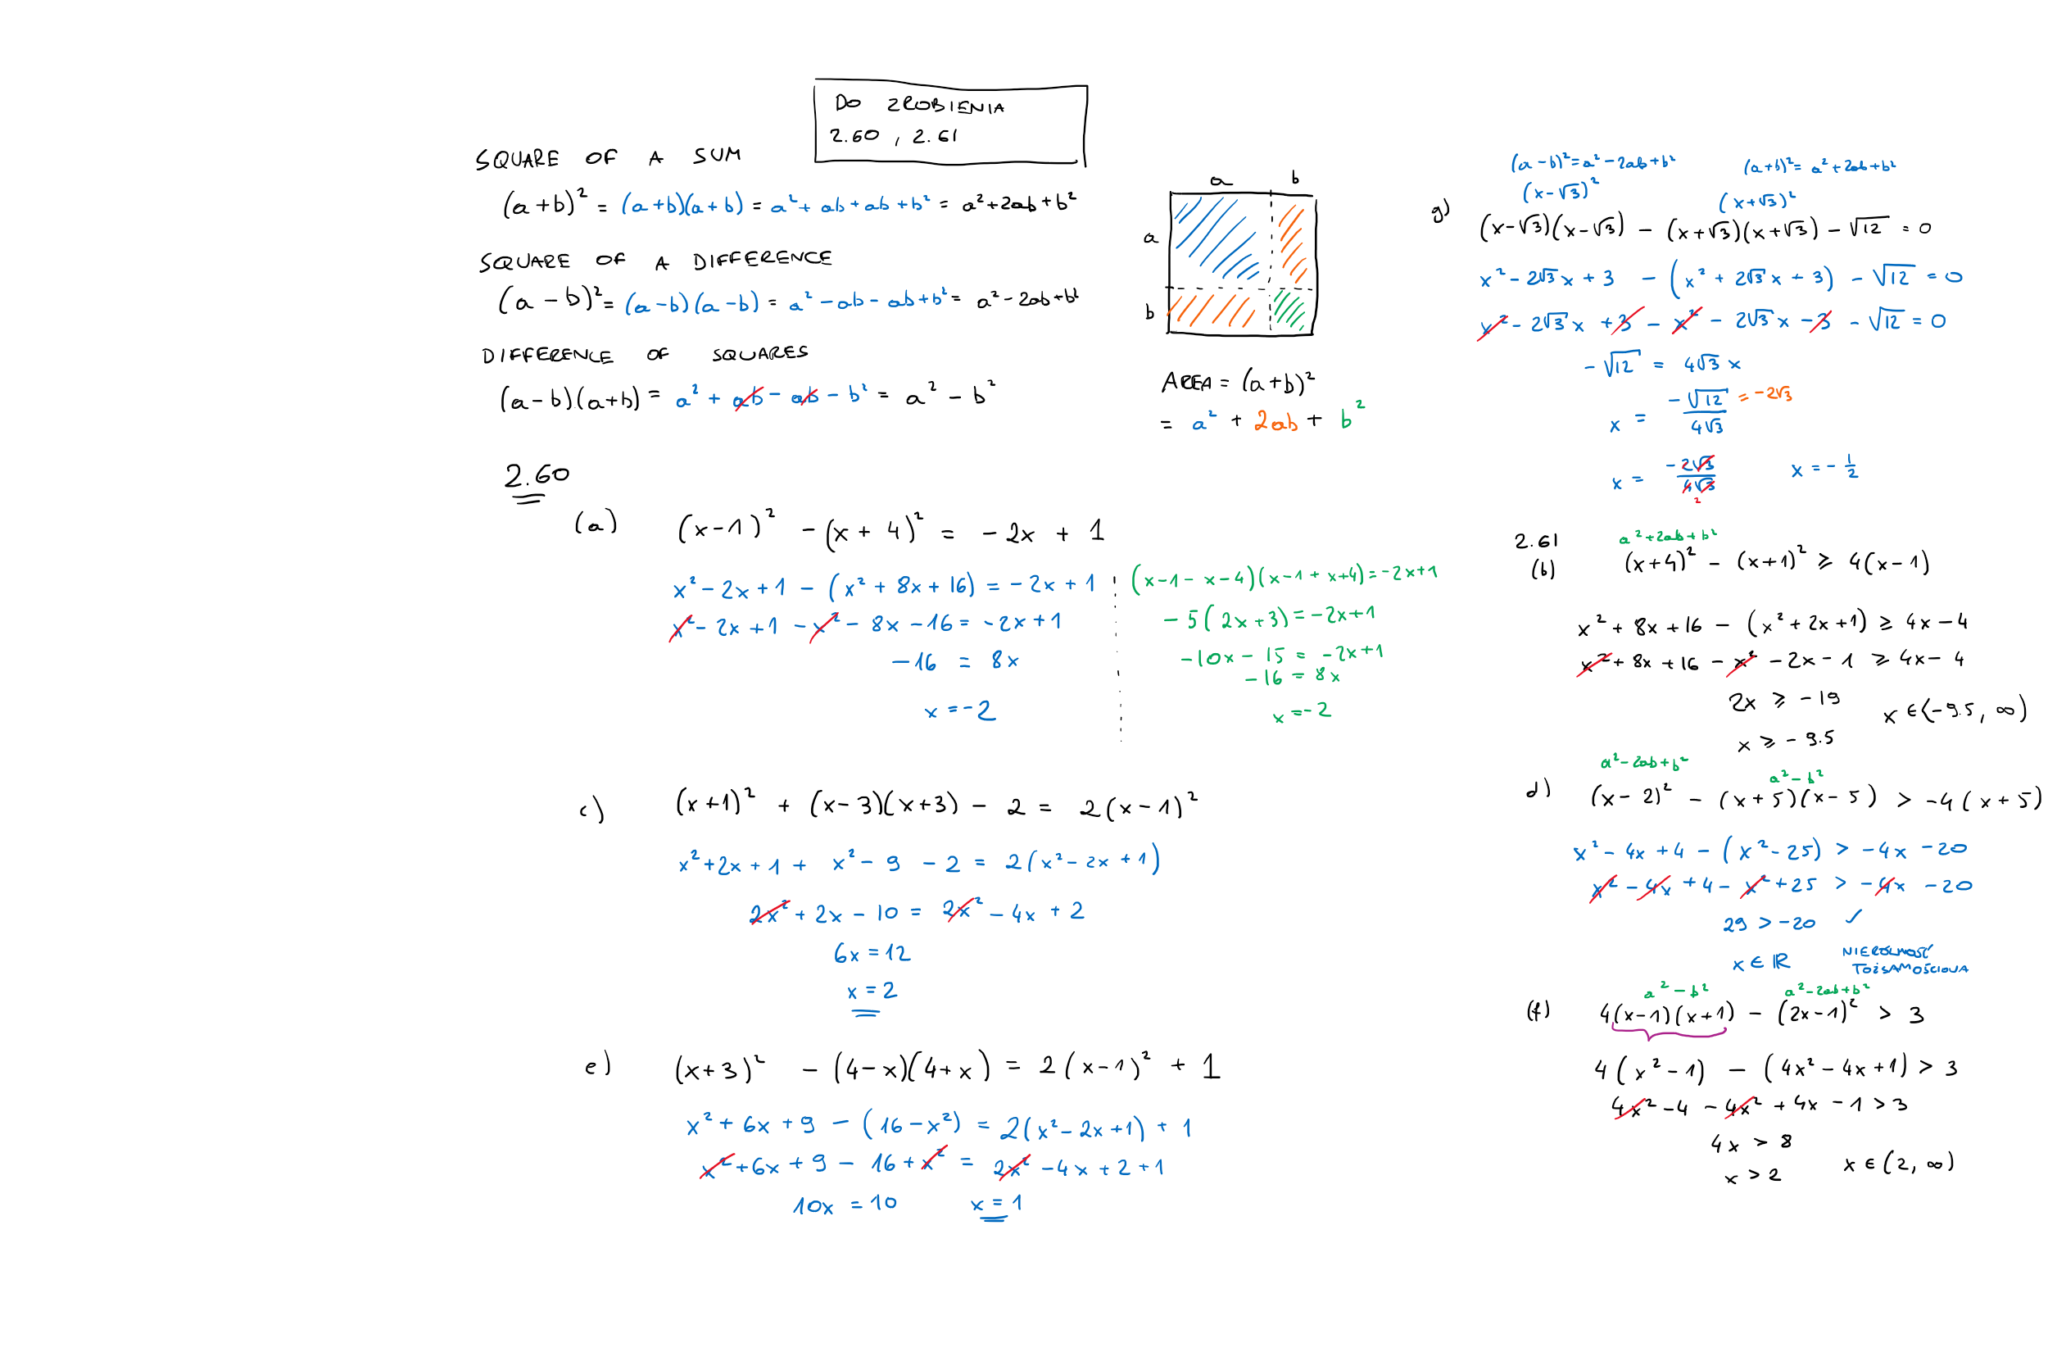 DO ZROBIENIA
2.60 , 2.61
SQUARE OF A SUM
(a+b)² = (a+b)(a+b) = a² + ab + ab + b² = a²+2ab+b²
SQUARE OF A DIFFERENCE
(a-b)² = (a-b)(a-b) = a² - ab - ab + b² = a² - 2ab+b²
DIFFERENCE OF SQUARES
(a-b)(a+b) = a² + ab - ab - b² = a² - b²
a b
a
b
AREA = (a+b)²
= a² + 2ab + b²
2.60
(a) (x-1)² - (x+4)² = -2x + 1
x² - 2x + 1 - (x² + 8x + 16) = -2x + 1
x² - 2x + 1 - x² - 8x - 16 = -2x + 1
-16 = 8x
x = -2
(x-1-x-4)(x-1+x+4) = -2x+1
-5(2x+3) = -2x+1
-10x - 15 = -2x+1
-16 = 8x
x = -2
c) (x+1)² + (x-3)(x+3) - 2 = 2(x-1)²
x²+2x+1 + x² - 9 - 2 = 2(x² - 2x + 1)
2x² + 2x - 10 = 2x² - 4x + 2
6x = 12
x = 2
e) (x+3)² - (4-x)(4+x) = 2(x-1)² + 1
x² + 6x + 9 - (16 - x²) = 2(x² - 2x + 1) + 1
x² + 6x + 9 - 16 + x² = 2x² - 4x + 2 + 1
10x = 10 x = 1
(a-b)² = a² - 2ab + b² (a+b)² = a² + 2ab + b²
(x-√3)² (x+√3)²
g) (x-√3)(x-√3) - (x+√3)(x+√3) - √12 = 0
x² - 2√3x + 3 - (x² + 2√3x + 3) - √12 = 0
x² - 2√3x + 3 - x² - 2√3x - 3 - √12 = 0
-√12 = 4√3x
x = -√12/4√3 = -2√3
x = -2√3/4√3 2 x = -1/2
2.61 a²+2ab+b²
(b) (x+4)² - (x+1)² ≥ 4(x-1)
x² + 8x + 16 - (x² + 2x + 1) ≥ 4x - 4
x² + 8x + 16 - x² - 2x - 1 ≥ 4x - 4
2x ≥ -19 x ∈ ⟨-9.5, ∞)
x ≥ -9.5
a² - 2ab + b² a² - b²
d) (x-2)² - (x+5)(x-5) > -4(x+5)
x² - 4x + 4 - (x² - 25) > -4x - 20
x² - 4x + 4 - x² + 25 > -4x - 20
29 > -20 ✓
x ∈ ℝ NIERÓWNOŚĆ
TOŻSAMOŚCIOWA
a² - b² a² - 2ab + b²
(f) 4(x-1)(x+1) - (2x-1)² > 3
4(x² - 1) - (4x² - 4x + 1) > 3
4x² - 4 - 4x² + 4x - 1 > 3
4x > 8
x > 2 x ∈ (2, ∞)